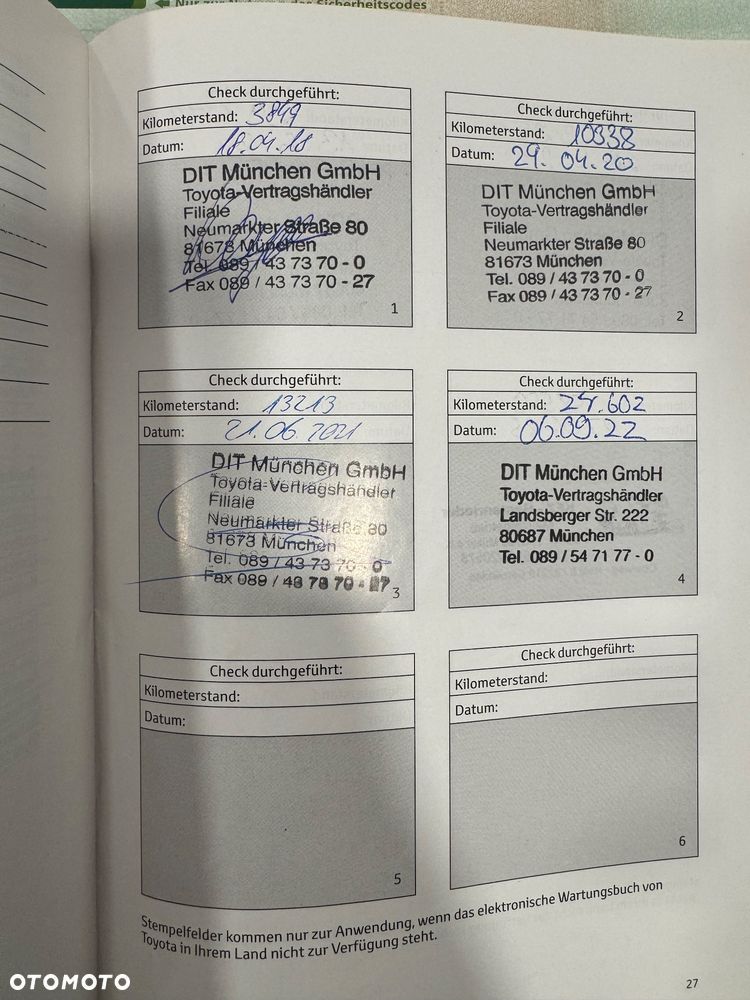 Nur zur Nutzung des Sicherheitscodes
Check durchgeführt:
Kilometerstand: 3849
Datum: 18.04.18
DIT München GmbH
Toyota-Vertragshändler
Filiale
Neumarkter Straße 80
81673 München
Tel. 089 / 43 73 70 - 0
Fax 089 / 43 73 70 - 27
1
Check durchgeführt:
Kilometerstand: 10338
Datum: 29.04.20
DIT München GmbH
Toyota-Vertragshändler
Filiale
Neumarkter Straße 80
81673 München
Tel. 089 / 43 73 70 - 0
Fax 089 / 43 73 70 - 27
2
Check durchgeführt:
Kilometerstand: 13213
Datum: 21.06.2021
DIT München GmbH
Toyota-Vertragshändler
Filiale
Neumarkter Straße 80
81673 München
Tel. 089 / 43 73 70 - 0
Fax 089 / 43 73 70 - 27
3
Check durchgeführt:
Kilometerstand: 24.602
Datum: 06.09.22
DIT München GmbH
Toyota-Vertragshändler
Landsberger Str. 222
80687 München
Tel. 089 / 54 71 77 - 0
4
Check durchgeführt:
Kilometerstand:
Datum:
5
Check durchgeführt:
Kilometerstand:
Datum:
6
Stempelfelder kommen nur zur Anwendung, wenn das elektronische Wartungsbuch von
Toyota in Ihrem Land nicht zur Verfügung steht.
27
OTOMOTO